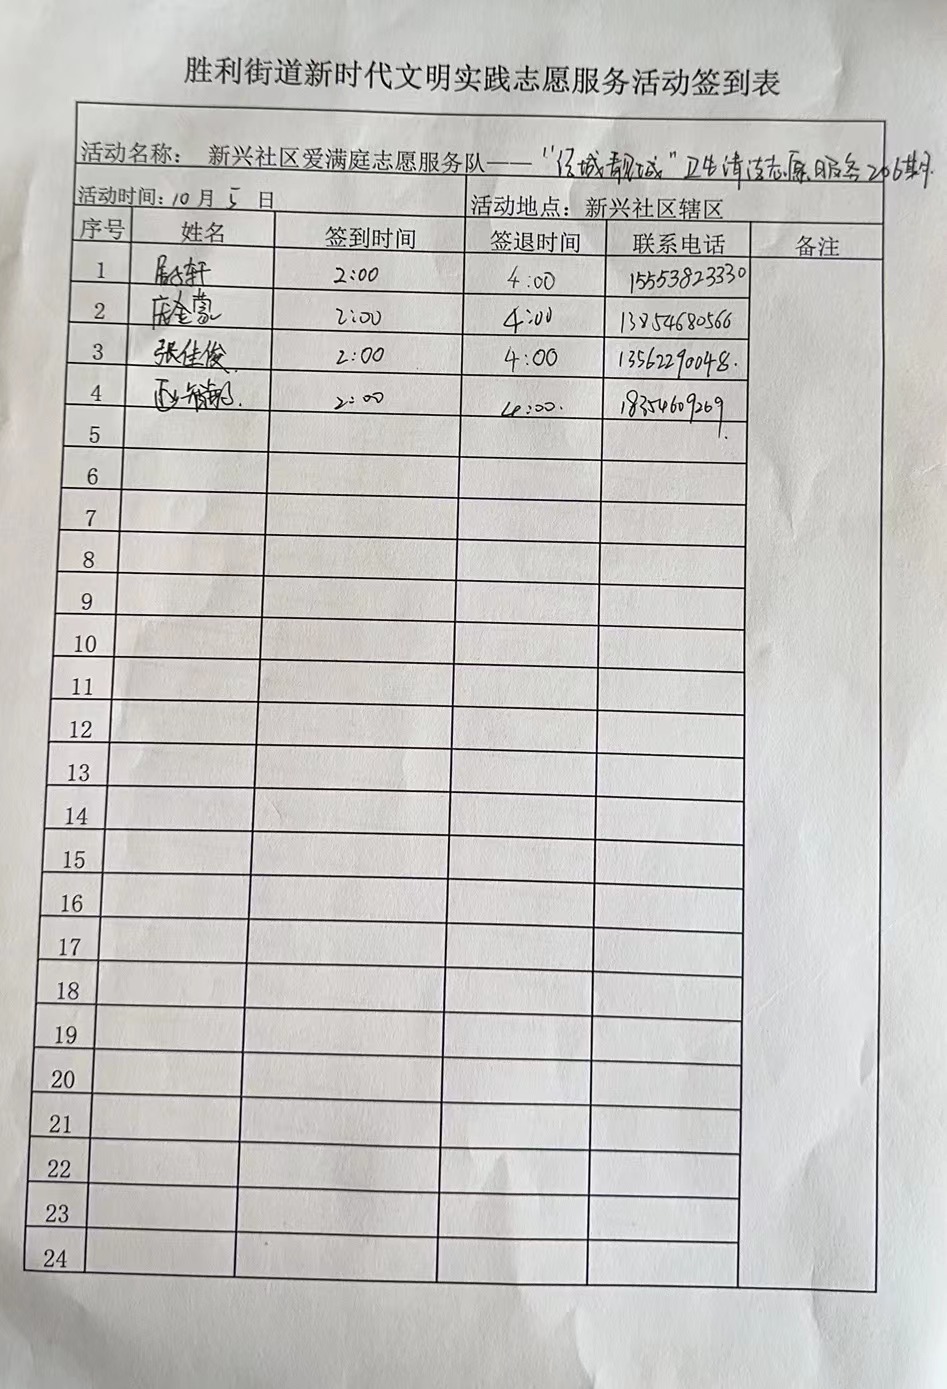 胜利街道新时代文明实践志愿服务活动签到表
活动名称: 新兴社区爱满庭志愿服务队——“ 靓城”卫生清洁志愿服务206期
活动时间: 10 月 5 日 活动地点: 新兴社区辖区
序号 姓名 签到时间 签退时间 联系电话 备注
1 轩 2:00 4:00 15553823330
2 2:00 4:00 13854680566
3 张佳俊 2:00 4:00 13562290048.
4 2:00 4:00. 18354609269
5
6
7
8
9
10
11
12
13
14
15
16
17
18
19
20
21
22
23
24